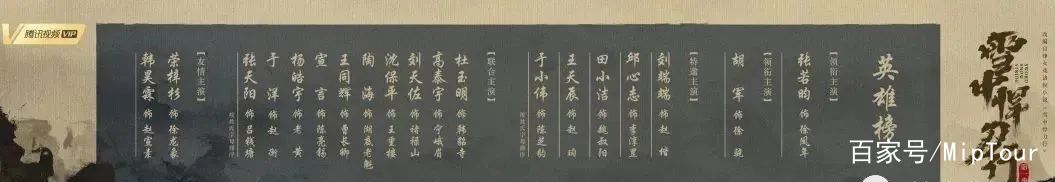 雪中悍刀行
英雄榜
【领衔主演】
张若昀 饰 徐凤年
【领衔主演】
胡 军 饰 徐 骁
【特邀主演】
刘端端 饰 赵 楷
邱心志 饰 李淳罡
田小洁 饰 魏叔阳
王天辰 饰 赵 珣
于小伟 饰 陈芝豹
【联合主演】
杜玉明 饰 韩貂寺
高泰宇 饰 宁峨眉
刘天佐 饰 褚禄山
沈保平 饰 王重楼
陶 海 饰 湖底老魁
王同辉 饰 曹长卿
宣 言 饰 陈亮锡
杨皓宇 饰 老 黄
于 洋 饰 赵 衡
张天阳 饰 吕钱塘
【友情主演】
荣梓杉 饰 徐龙象
韩昊霖 饰 赵宣素
腾讯视频 VIP
百家号/MipTour